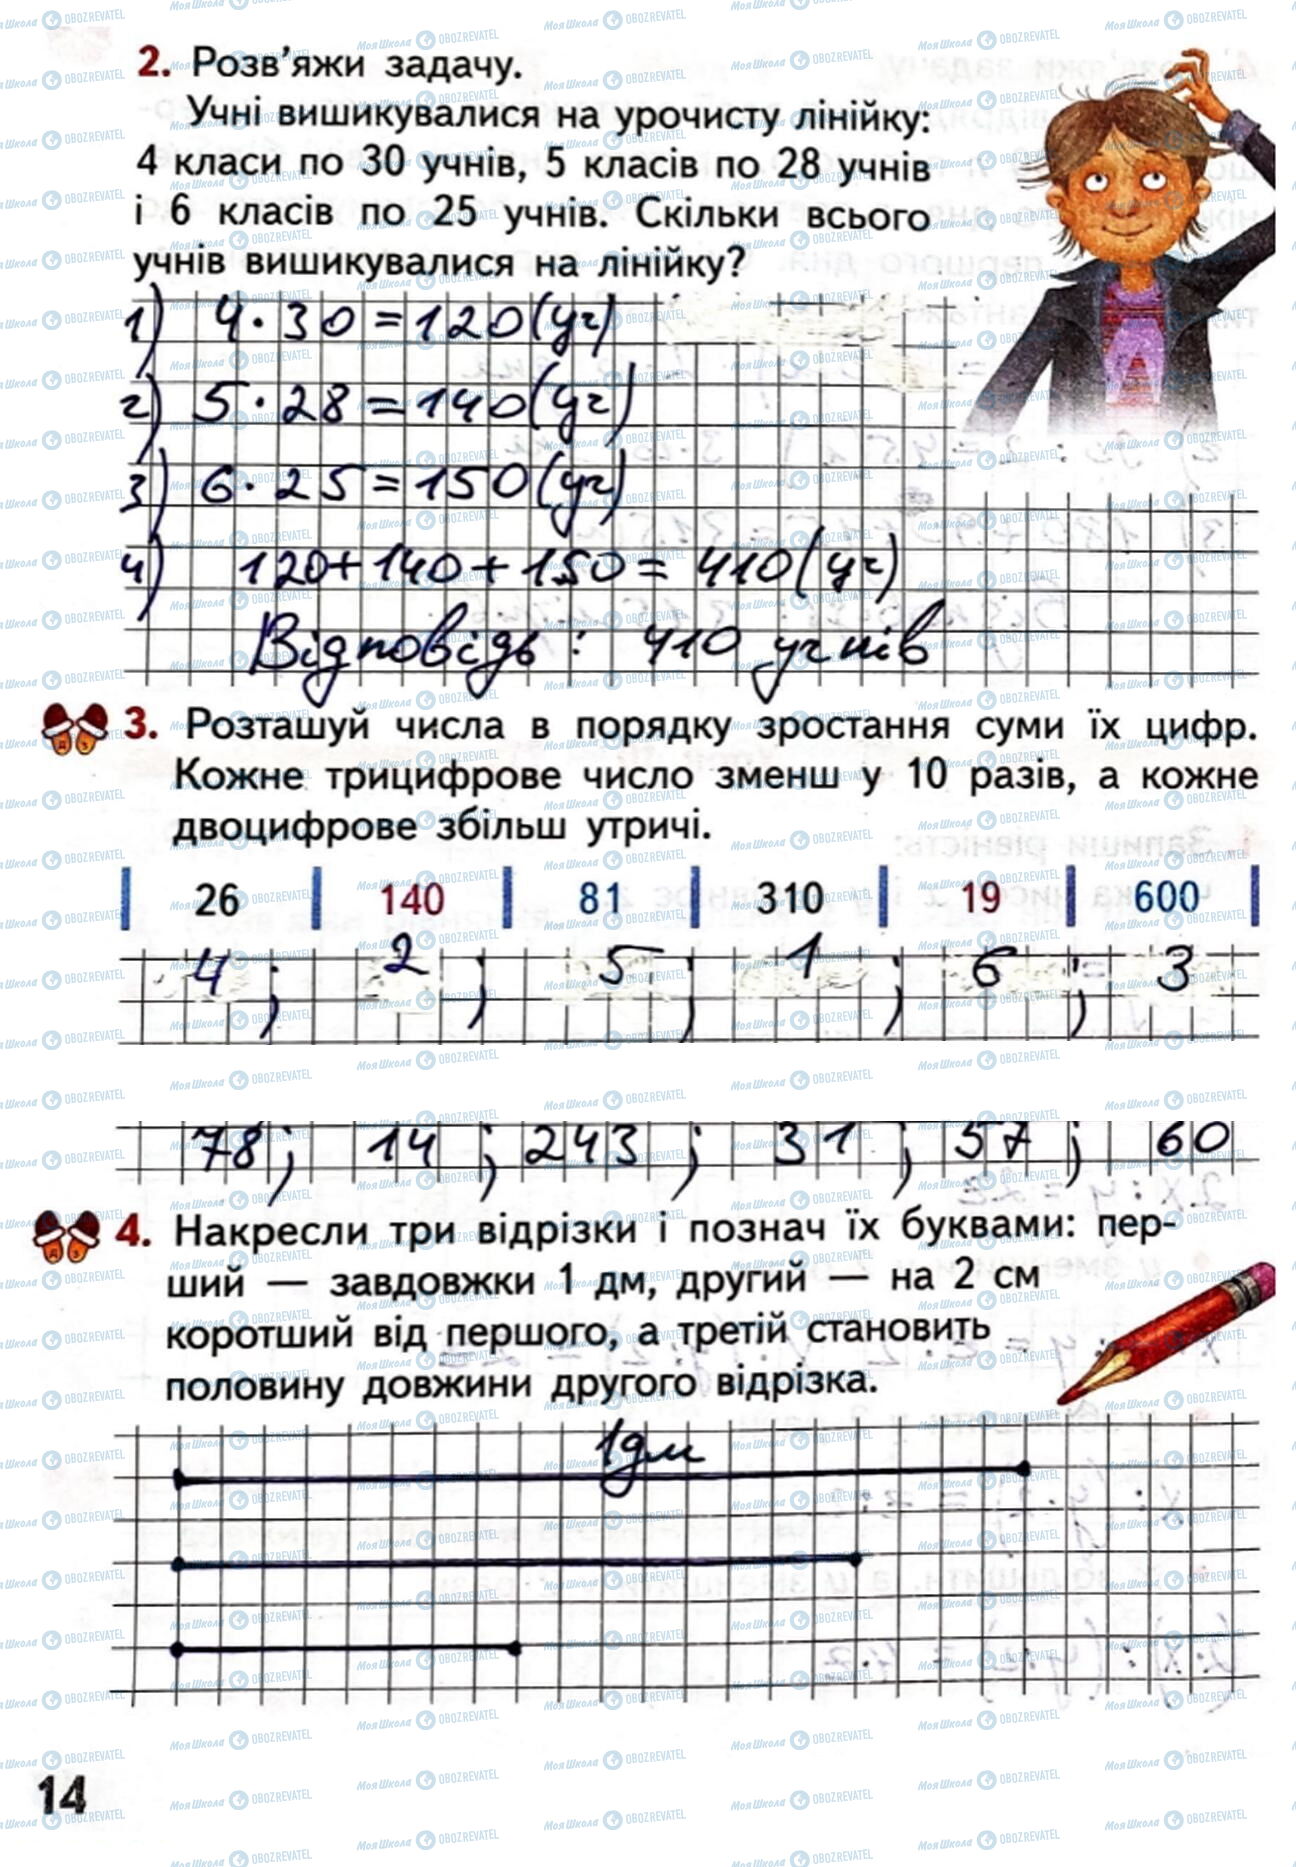 2. Розв'яжи задачу.
Учні вишикувалися на урочисту лінійку:
4 класи по 30 учнів, 5 класів по 28 учнів
і 6 класів по 25 учнів. Скільки всього
учнів вишикувалися на лінійку?
1) 4·30=120(уч)
2) 5·28=140(уч)
3) 6·25=150(уч)
4) 120+140+150=410(уч)
Відповідь: 410 учнів
3. Розташуй числа в порядку зростання суми їх цифр.
Кожне трицифрове число зменш у 10 разів, а кожне
двоцифрове збільш утричі.
26 140 81 310 19 600
4; 2; 5; 1; 6; 3
78; 14; 243; 31; 57; 60
4. Накресли три відрізки і познач їх буквами: пер-
ший — завдовжки 1 дм, другий — на 2 см
коротший від першого, а третій становить
половину довжини другого відрізка.
1дм
14
МояШкола OBOZREVATEL